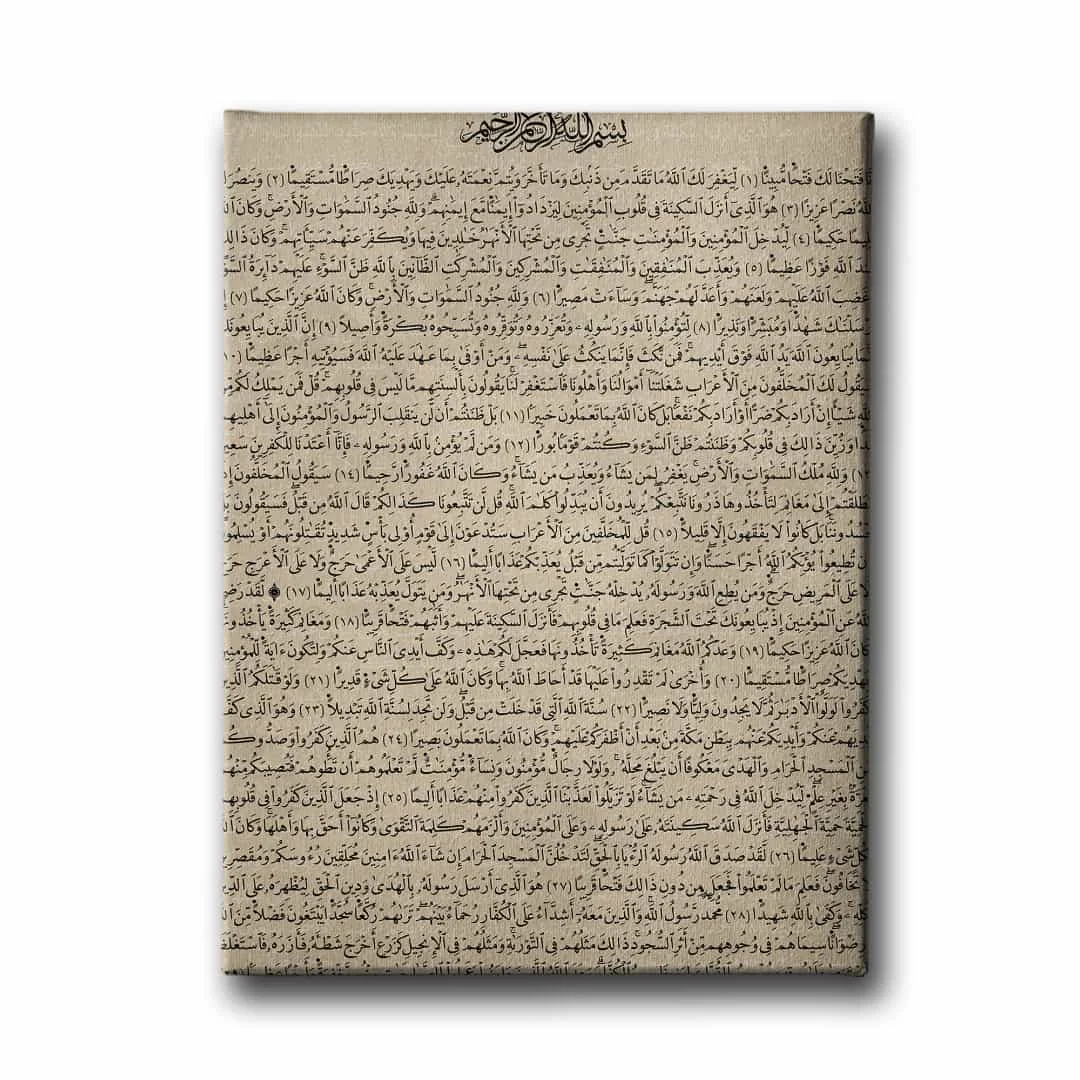 بِسْمِ اللَّهِ الرَّحْمَٰنِ الرَّحِيمِ
فَتَحْنَا لَكَ فَتْحًا مُّبِينًا (١) لِّيَغْفِرَ لَكَ ٱللَّهُ مَا تَقَدَّمَ مِن ذَنۢبِكَ وَمَا تَأَخَّرَ وَيُتِمَّ نِعْمَتَهُۥ عَلَيْكَ وَيَهْدِيَكَ صِرَاطًا مُّسْتَقِيمًا (٢) وَيَنصُرَ
نَصْرًا عَزِيزًا (٣) هُوَ ٱلَّذِىٓ أَنزَلَ ٱلسَّكِينَةَ فِى قُلُوبِ ٱلْمُؤْمِنِينَ لِيَزْدَادُوٓا۟ إِيمَٰنًا مَّعَ إِيمَٰنِهِمْ ۗ وَلِلَّهِ جُنُودُ ٱلسَّمَٰوَٰتِ وَٱلْأَرْضِ ۚ وَكَانَ
حَكِيمًا (٤) لِّيُدْخِلَ ٱلْمُؤْمِنِينَ وَٱلْمُؤْمِنَٰتِ جَنَّٰتٍ تَجْرِى مِن تَحْتِهَا ٱلْأَنْهَٰرُ خَٰلِدِينَ فِيهَا وَيُكَفِّرَ عَنْهُمْ سَيِّـَٔاتِهِمْ ۚ وَكَانَ
ٱللَّهِ فَوْزًا عَظِيمًا (٥) وَيُعَذِّبَ ٱلْمُنَٰفِقِينَ وَٱلْمُنَٰفِقَٰتِ وَٱلْمُشْرِكِينَ وَٱلْمُشْرِكَٰتِ ٱلظَّآنِّينَ بِٱللَّهِ ظَنَّ ٱلسَّوْءِ ۚ عَلَيْهِمْ دَآئِرَةُ
غَضِبَ ٱللَّهُ عَلَيْهِمْ وَلَعَنَهُمْ وَأَعَدَّ لَهُمْ جَهَنَّمَ ۖ وَسَآءَتْ مَصِيرًا (٦) وَلِلَّهِ جُنُودُ ٱلسَّمَٰوَٰتِ وَٱلْأَرْضِ ۚ وَكَانَ ٱللَّهُ عَزِيزًا حَكِيمًا (٧)
رْسَلْنَٰكَ شَٰهِدًا وَمُبَشِّرًا وَنَذِيرًا (٨) لِّتُؤْمِنُوا۟ بِٱللَّهِ وَرَسُولِهِۦ وَتُعَزِّرُوهُ وَتُوَقِّرُوهُ وَتُسَبِّحُوهُ بُكْرَةً وَأَصِيلًا (٩) إِنَّ ٱلَّذِينَ يُبَايِعُونَكَ
يُبَايِعُونَ ٱللَّهَ يَدُ ٱللَّهِ فَوْقَ أَيْدِيهِمْ ۚ فَمَن نَّكَثَ فَإِنَّمَا يَنكُثُ عَلَىٰ نَفْسِهِۦ ۖ وَمَنْ أَوْفَىٰ بِمَا عَٰهَدَ عَلَيْهُ ٱللَّهَ فَسَيُؤْتِيهِ أَجْرًا عَظِيمًا
سَيَقُولُ لَكَ ٱلْمُخَلَّفُونَ مِنَ ٱلْأَعْرَابِ شَغَلَتْنَآ أَمْوَٰلُنَا وَأَهْلُونَا فَٱسْتَغْفِرْ لَنَا ۚ يَقُولُونَ بِأَلْسِنَتِهِم مَّا لَيْسَ فِى قُلُوبِهِمْ ۚ قُلْ فَمَن يَمْلِكُ لَكُم
شَيْـًٔا إِنْ أَرَادَ بِكُمْ ضَرًّا أَوْ أَرَادَ بِكُمْ نَفْعًۢا ۚ بَلْ كَانَ ٱللَّهُ بِمَا تَعْمَلُونَ خَبِيرًۢا (١١) بَلْ ظَنَنتُمْ أَن لَّن يَنقَلِبَ ٱلرَّسُولُ وَٱلْمُؤْمِنُونَ إِلَىٰٓ أَهْلِيهِمْ
وَزُيِّنَ ذَٰلِكَ فِى قُلُوبِكُمْ وَظَنَنتُمْ ظَنَّ ٱلسَّوْءِ وَكُنتُمْ قَوْمًۢا بُورًا (١٢) وَمَن لَّمْ يُؤْمِنۢ بِٱللَّهِ وَرَسُولِهِۦ فَإِنَّآ أَعْتَدْنَا لِلْكَٰفِرِينَ
وَلِلَّهِ مُلْكُ ٱلسَّمَٰوَٰتِ وَٱلْأَرْضِ ۚ يَغْفِرُ لِمَن يَشَآءُ وَيُعَذِّبُ مَن يَشَآءُ ۚ وَكَانَ ٱللَّهُ غَفُورًا رَّحِيمًا (١٤) سَيَقُولُ ٱلْمُخَلَّفُونَ
ٱنطَلَقْتُمْ إِلَىٰ مَغَانِمَ لِتَأْخُذُوهَا ذَرُونَا نَتَّبِعْكُمْ ۖ يُرِيدُونَ أَن يُبَدِّلُوا۟ كَلَٰمَ ٱللَّهِ ۚ قُل لَّن تَتَّبِعُونَا كَذَٰلِكُمْ قَالَ ٱللَّهُ مِن قَبْلُ ۖ فَسَيَقُولُونَ
تَحْسُدُونَنَا ۚ بَلْ كَانُوا۟ لَا يَفْقَهُونَ إِلَّا قَلِيلًا (١٥) قُل لِّلْمُخَلَّفِينَ مِنَ ٱلْأَعْرَابِ سَتُدْعَوْنَ إِلَىٰ قَوْمٍ أُو۟لِى بَأْسٍ شَدِيدٍ تُقَٰتِلُونَهُمْ أَوْ يُسْلِمُو
تُطِيعُوا۟ يُؤْتِكُمُ ٱللَّهُ أَجْرًا حَسَنًا ۖ وَإِن تَتَوَلَّوْا۟ كَمَا تَوَلَّيْتُم مِّن قَبْلُ يُعَذِّبْكُمْ عَذَابًا أَلِيمًا (١٦) لَّيْسَ عَلَى ٱلْأَعْمَىٰ حَرَجٌ وَلَا عَلَى ٱلْأَعْرَجِ
عَلَى ٱلْمَرِيضِ حَرَجٌ ۗ وَمَن يُطِعِ ٱللَّهَ وَرَسُولَهُۥ يُدْخِلْهُ جَنَّٰتٍ تَجْرِى مِن تَحْتِهَا ٱلْأَنْهَٰرُ ۖ وَمَن يَتَوَلَّ يُعَذِّبْهُ عَذَابًا أَلِيمًا (١٧) ۞ لَّقَدْ
عَنِ ٱلْمُؤْمِنِينَ إِذْ يُبَايِعُونَكَ تَحْتَ ٱلشَّجَرَةِ فَعَلِمَ مَا فِى قُلُوبِهِمْ فَأَنزَلَ ٱلسَّكِينَةَ عَلَيْهِمْ وَأَثَٰبَهُمْ فَتْحًا قَرِيبًا (١٨) وَمَغَانِمَ كَثِيرَةً يَأْخُذُونَ
ٱللَّهُ عَزِيزًا حَكِيمًا (١٩) وَعَدَكُمُ ٱللَّهُ مَغَانِمَ كَثِيرَةً تَأْخُذُونَهَا فَعَجَّلَ لَكُمْ هَٰذِهِۦ وَكَفَّ أَيْدِىَ ٱلنَّاسِ عَنكُمْ وَلِتَكُونَ ءَايَةً لِّلْمُؤْمِنِينَ
صِرَٰطًا مُّسْتَقِيمًا (٢٠) وَأُخْرَىٰ لَمْ تَقْدِرُوا۟ عَلَيْهَا قَدْ أَحَاطَ ٱللَّهُ بِهَا ۚ وَكَانَ ٱللَّهُ عَلَىٰ كُلِّ شَىْءٍ قَدِيرًا (٢١) وَلَوْ قَٰتَلَكُمُ
كَفَرُوا۟ لَوَلَّوُا۟ ٱلْأَدْبَٰرَ ثُمَّ لَا يَجِدُونَ وَلِيًّا وَلَا نَصِيرًا (٢٢) سُنَّةَ ٱللَّهِ ٱلَّتِى قَدْ خَلَتْ مِن قَبْلُ ۖ وَلَن تَجِدَ لِسُنَّةِ ٱللَّهِ تَبْدِيلًا (٢٣) وَهُوَ ٱلَّذِى كَفَّ
عَنكُمْ وَأَيْدِيَكُمْ عَنْهُم بِبَطْنِ مَكَّةَ مِنۢ بَعْدِ أَنْ أَظْفَرَكُمْ عَلَيْهِمْ ۚ وَكَانَ ٱللَّهُ بِمَا تَعْمَلُونَ بَصِيرًا (٢٤) هُمُ ٱلَّذِينَ كَفَرُوا۟ وَصَدُّوكُ
ٱلْمَسْجِدِ ٱلْحَرَامِ وَٱلْهَدْىَ مَعْكُوفًا أَن يَبْلُغَ مَحِلَّهُۥ ۚ وَلَوْلَا رِجَالٌ مُّؤْمِنُونَ وَنِسَآءٌ مُّؤْمِنَٰتٌ لَّمْ تَعْلَمُوهُمْ أَن تَطَـُٔوهُمْ فَتُصِيبَكُم مِّنْهُم
بِغَيْرِ عِلْمٍ ۖ لِّيُدْخِلَ ٱللَّهُ فِى رَحْمَتِهِۦ مَن يَشَآءُ ۚ لَوْ تَزَيَّلُوا۟ لَعَذَّبْنَا ٱلَّذِينَ كَفَرُوا۟ مِنْهُمْ عَذَابًا أَلِيمًا (٢٥) إِذْ جَعَلَ ٱلَّذِينَ كَفَرُوا۟ فِى قُلُوبِهِمُ
حَمِيَّةَ ٱلْجَٰهِلِيَّةِ فَأَنزَلَ ٱللَّهُ سَكِينَتَهُۥ عَلَىٰ رَسُولِهِۦ وَعَلَى ٱلْمُؤْمِنِينَ وَأَلْزَمَهُمْ كَلِمَةَ ٱلتَّقْوَىٰ وَكَانُوٓا۟ أَحَقَّ بِهَا وَأَهْلَهَا ۚ وَكَانَ
شَىْءٍ عَلِيمًا (٢٦) لَّقَدْ صَدَقَ ٱللَّهُ رَسُولَهُ ٱلرُّءْيَا بِٱلْحَقِّ ۖ لَتَدْخُلُنَّ ٱلْمَسْجِدَ ٱلْحَرَامَ إِن شَآءَ ٱللَّهُ ءَامِنِينَ مُحَلِّقِينَ رُءُوسَكُمْ وَمُقَصِّرِينَ
تَخَافُونَ ۖ فَعَلِمَ مَا لَمْ تَعْلَمُوا۟ فَجَعَلَ مِن دُونِ ذَٰلِكَ فَتْحًا قَرِيبًا (٢٧) هُوَ ٱلَّذِىٓ أَرْسَلَ رَسُولَهُۥ بِٱلْهُدَىٰ وَدِينِ ٱلْحَقِّ لِيُظْهِرَهُۥ عَلَى ٱلدِّينِ
كُلِّهِۦ ۚ وَكَفَىٰ بِٱللَّهِ شَهِيدًا (٢٨) مُّحَمَّدٌ رَّسُولُ ٱللَّهِ ۚ وَٱلَّذِينَ مَعَهُۥٓ أَشِدَّآءُ عَلَى ٱلْكُفَّارِ رُحَمَآءُ بَيْنَهُمْ ۖ تَرَىٰهُمْ رُكَّعًا سُجَّدًا يَبْتَغُونَ فَضْلًا مِّنَ
وَرِضْوَٰنًا ۖ سِيمَاهُمْ فِى وُجُوهِهِم مِّنْ أَثَرِ ٱلسُّجُودِ ۚ ذَٰلِكَ مَثَلُهُمْ فِى ٱلتَّوْرَىٰةِ ۚ وَمَثَلُهُمْ فِى ٱلْإِنجِيلِ كَزَرْعٍ أَخْرَجَ شَطْـَٔهُۥ فَـَٔازَرَهُۥ فَٱسْتَغْلَظَ